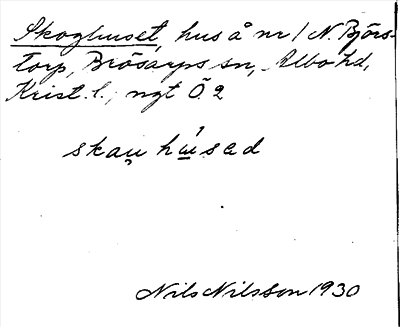 Skoghuset, hus å nr 1 N. Björs-
torp, Brösarps sn, Albo hd,
Krist. l.; ngt Ö 2
skau̯ hu̲sad
Nils Nilsson 1930